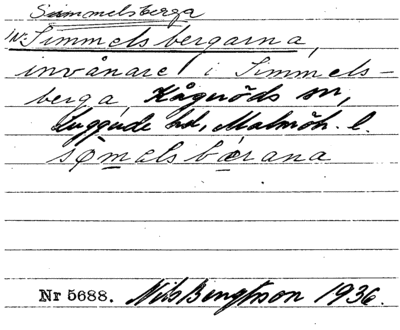 Simmelsberga
IN: Simmelsbergarna,
invånare i Simmels-
berga, Kågeröds sn,
Luggude hd, Malmöh. l.
sømelsbærana
Nr 5688. Nils Bengtsson 1936.